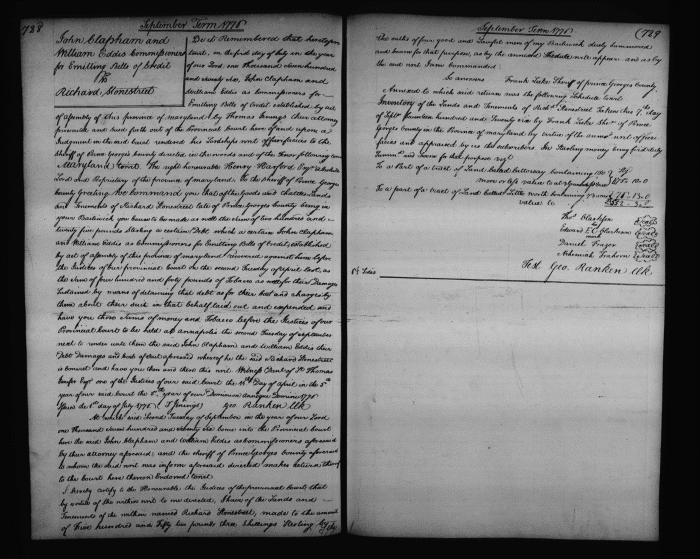 728
September Term 1776
John Clapham and
William Eddis Commissioners
for Emitting Bills of Credit
Vs
Richard Stonestreet
Be it Remembered that heretofore
towit, on the first day of July in the year
of our Lord one thousand seven hundred
and seventy six, John Clapham and
William Eddis as Commissioners for
Emitting Bills of Credit established by act
of assembly of this province of maryland by Thomas Jenings their attorney
prosecuted and sued forth out of the Provincial Court here of and upon a
Judgment in the said Court rendered his Lordships writ of fieri facias to the
Sheriff of Prince Georges County directed in the words and of the Tenor following towit
Maryland towit. The right honourable Henry Harford Esqr absolute
Lord and Proprietary of the province of maryland, To the Sheriff of Prince Georges
County Greeting We Command you that of the Goods and Chattles Lands
and Tenements of Richard Stonestreet late of Prince Georges County being in
your Bailiwick you cause to be made as well the sum of two hundred and
twenty five pounds Sterling a certain Debt which a certain John Clapham
and William Eddis as Commissioners for Emitting Bills of Credit, established
by act of assembly of this province of maryland recovered against him before
the Justices of our provincial Court on the second Tuesday of april last, as
the sum of four hundred and forty pounds of Tobacco as well for their Damages
sustained by means of detaining that debt as for their Cost and charges by
them about their suit in that behalf laid out and expended and
have you those sums of money and Tobacco before the Justices of our
Provincial Court to be held at annapolis the second Tuesday of september
next to render unto them the said John Clapham and William Eddis their
Debt Damages and Costs of Court aforesaid whereof he the said Richard Stonestreet
is Convict and have you then and there this writ. Witness Daniel of St Thomas
Jenifer Esqr one of the Justices of our said Court the Day of april in the 5th
year of our said Court the 5th year of our Dominion annoque Domini 1776
Issued the 1st day of July 1776 (T Jenings) Geo. Ranken Clk
At which said second Tuesday of September in the year of our Lord
one thousand seven hundred and seventy six came into the Provincial Court
here the said John Clapham and William Eddis as Commissioners aforesaid
by their attorney aforesaid and the Sheriff of Prince Georges County aforesaid
to whom the said writ was in form aforesaid directed makes return thereof
to the Court here thereon Endorsed towit
I hereby certify to the Honourable the Justices of the provincial Court, that
by virtue of the within writ to me directed, I have of the Lands and
Tenements of the within named Richard Stonestreet, made to the amount
of five hundred and fifty two pounds three shillings Sterling by
September Term 1776
(729
the oaths of four good and Lawful men of my Bailiwick duely summoned
and sworn for that purpose, as by the annexed schedule will appear and as by
the said writ I am commanded
So answers Frank Leeke Sheriff of prince Georges County
Annexed to which said return was the following schedule towit
Inventory of the Lands and Tenements of Richd Stonestreet taken this 7th day
of Septr seventeen hundred and seventy six by Frank Leeke Sherf of Prince
Georges County in the Province of maryland by virtue of the annexd writ of fiere
facias and appraised by us the subscribers in Sterling money being first duely
Summd and sworn for that purpose
To a Part of a tract of Land called containing
more or less value to
To a part of a tract of Land called Little containing
value to
Thos Clarkson (Seal)
Edward (Seal)
Daniel Frazer (Seal)
Nehemiah (Seal)
Test Geo. Ranken Clk